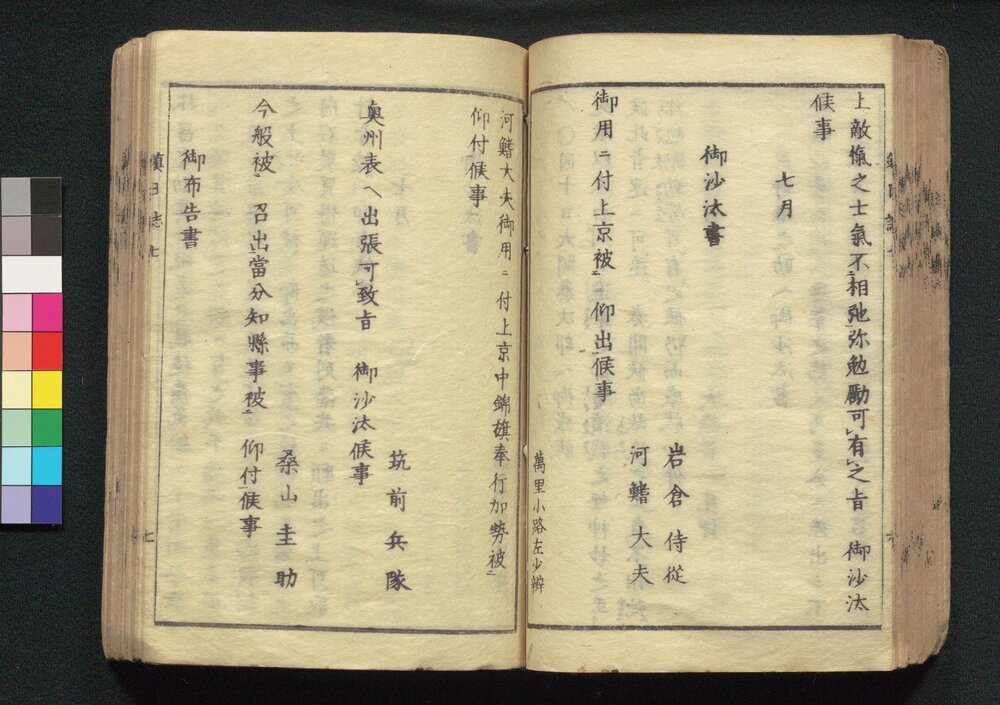 上敵愾之士氣不相弛弥勉勵可有之旨　御沙汰
候事
七月
御沙汰書
岩倉侍従
河鰭大夫
御用ニ付上京被　仰出候事
萬里小路左少辨
河鰭大夫御用ニ付上京中錦旗奉行加勢被
仰付候事
筑前兵隊
奥州表ヘ出張可致旨　御沙汰候事
桑山圭助
今般被　召出當分知縣事被　仰付候事
御布告書
鎮日志七
七